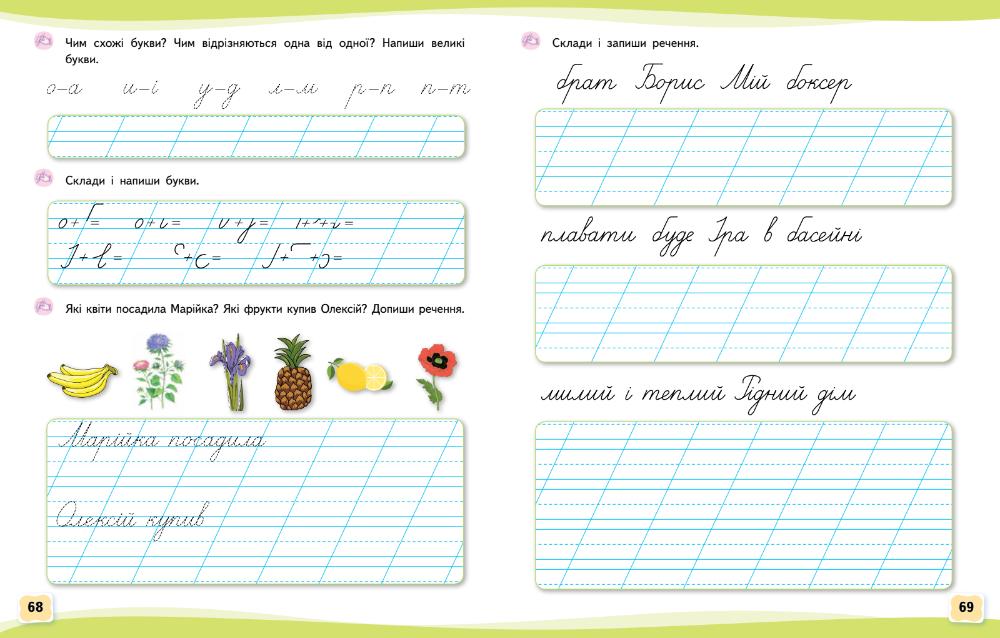 Чим схожі букви? Чим відрізняються одна від одної? Напиши великі
букви.
о–а и–і у–д л–м р–п п–т
Склади і напиши букви.
Які квіти посадила Марійка? Які фрукти купив Олексій? Допиши речення.
Марійка посадила
Олексій купив
68
Склади і запиши речення.
брат Борис Мій боксер
плавати буде Іра в басейні
милий і теплий Рідний дім
69